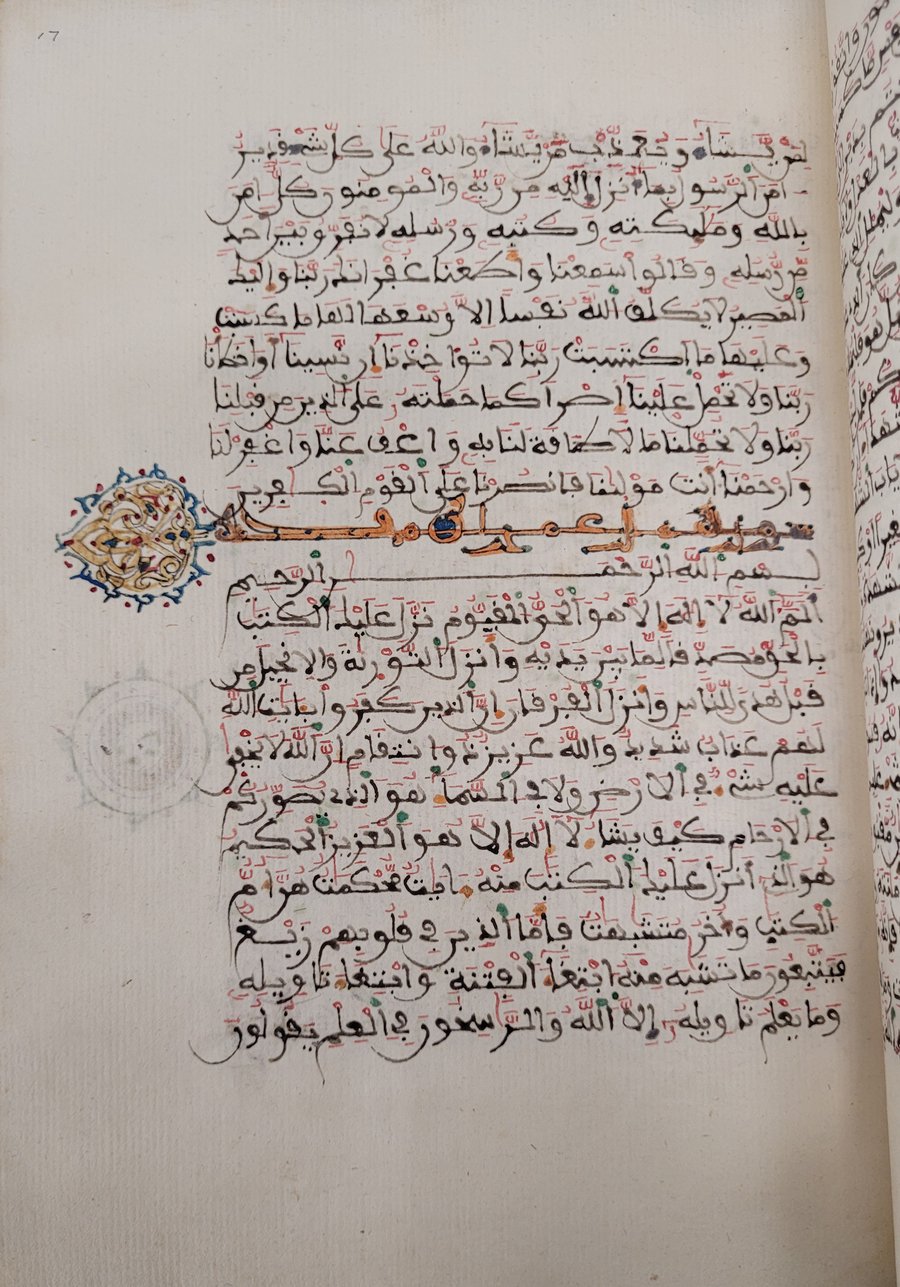 17
لمن يشاء ويعذب من يشاء والله على كل شيء قدير
امن الرسول بما انزل اليه من ربه والمومنون كل امن
بالله وملئكته وكتبه ورسله لا نفرق بين احد
من رسله وقالوا سمعنا واطعنا غفرانك ربنا واليك
المصير لا يكلف الله نفسا الا وسعها لها ما كسبت
وعليها ما اكتسبت ربنا لا تواخذنا ان نسينا او اخطانا
ربنا ولا تحمل علينا اصرا كما حملته على الذين من قبلنا
ربنا ولا تحملنا ما لا طاقة لنا به واعف عنا واغفر لنا
وارحمنا انت مولىنا فانصرنا على القوم الكفرين
سورة ال عمران
بسم الله الرحمن الرحيم
الم الله لا اله الا هو الحي القيوم نزل عليك الكتب
بالحق مصدقا لما بين يديه وانزل التورية والانجيل من
قبل هدى للناس وانزل الفرقان ان الذين كفروا بايت الله
لهم عذاب شديد والله عزيز ذو انتقام ان الله لا يخفى
عليه شيء في الارض ولا في السماء هو الذي يصوركم
في الارحام كيف يشاء لا اله الا هو العزيز الحكيم
هو الذي انزل عليك الكتب منه ايت محكمت هن ام
الكتب واخر متشبهت فاما الذين في قلوبهم زيغ
فيتبعون ما تشبه منه ابتغاء الفتنة وابتغاء تاويله
وما يعلم تاويله الا الله والرسخون في العلم يقولون